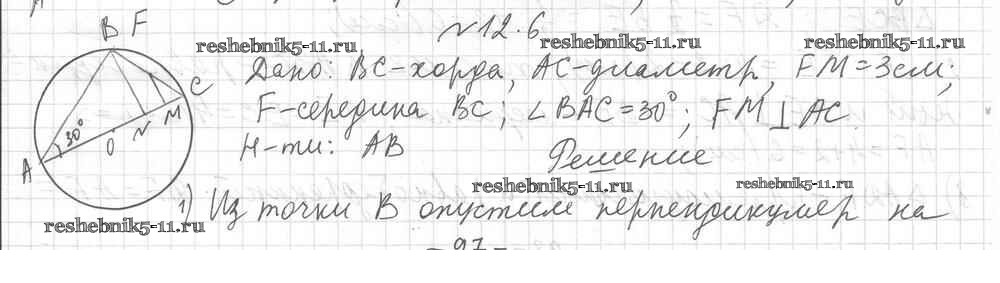 №12.6
reshebnik5-11.ru
reshebnik5-11.ru
reshebnik5-11.ru
B F
Дано: BC-хорда, AC-диаметр, FM=3см;
C
F-середина BC; ∠BAC=30°; FM⊥AC.
30°
O N M
A
Н-ти: AB
Решение
reshebnik5-11.ru
reshebnik5-11.ru
1) Из точки B опустим перпендикуляр на
reshebnik5-11.ru
-97-